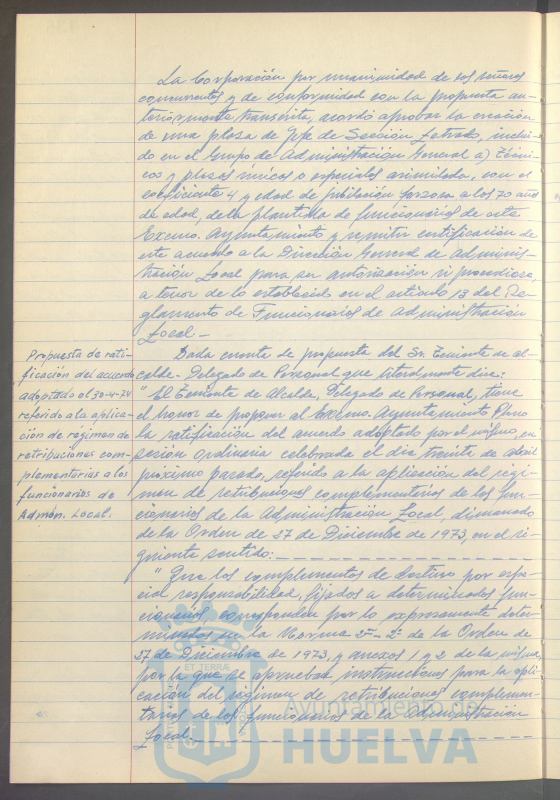 La Corporación por unanimidad de los señores
concurrentes y de conformidad con la propuesta an-
teriormente transcrita, acordó aprobar la creación
de una plaza de Jefe de Sección Letrado, inclui-
do en el Grupo de Administración General a) Técni-
cos y plazas únicas o especiales asimiladas, con el
coeficiente 4 y edad de jubilación forzosa a los 70 años
de edad, de la plantilla de funcionarios de este
Excmo. Ayuntamiento y remitir certificación de
este acuerdo a la Dirección General de Adminis-
tración Local para su autorización si procediese,
a tenor de lo establecido en el artículo 13 del Re-
glamento de Funcionarios de Administración
Local.-
Propuesta de rati-
ficación del acuerdo
adoptado el 30-4-74
referido a la aplica-
ción de régimen de
retribuciones com-
plementarias a los
funcionarios de
Admón. Local.
Dada cuenta de propuesta del Sr. Teniente de al-
calde-Delegado de Personal que literalmente dice:
"El Teniente de Alcalde, Delegado de Personal, tiene
el honor de proponer al Excmo. Ayuntamiento Pleno
la ratificación del acuerdo adoptado por el mismo en
sesión ordinaria celebrada el día treinta de abril
próximo pasado, referido a la aplicación del régi-
men de retribuciones complementarias de los fun-
cionarios de la Administración Local, dimanado
de la Orden de 27 de Diciembre de 1973, en el si-
guiente sentido:
"Que los complementos de destino por espe-
cial responsabilidad, fijados a determinados fun-
cionarios, corresponden por lo expresamente deter-
minados en la Norma 2ª-2. de la Orden de
27 de Diciembre de 1973, y anexos 1 y 2 de la misma,
por la que se aprueban instrucciones para la apli-
cación del régimen de retribuciones complemen-
tarias de los funcionarios de la administración
Local.
Ayuntamiento de
HUELVA